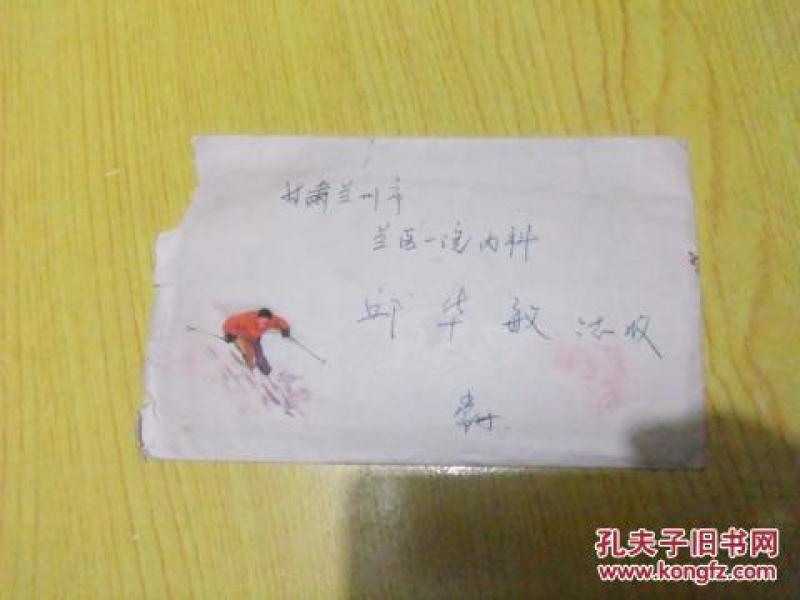 甘肃兰州市
兰医一院内科
邱华敏 法收
孔夫子旧书网
www.kongfz.com